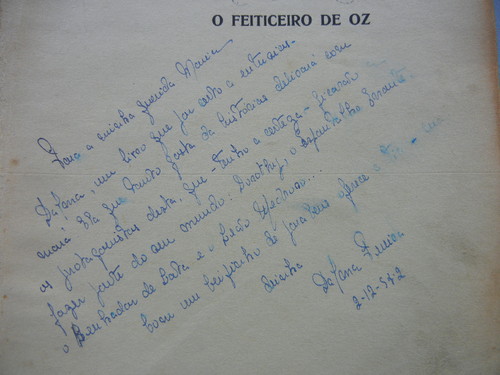 O FEITICEIRO DE OZ
Para a minha querida Maria
Dafansa, um livro que por certo a entusias-
mará. Ela que tanto gosta de histórias delirará com
as protagonistas desta, que - tenho a certeza - ficarão a
fazer parte do seu mundo: Dorothy, o Espantalho
o Lenhador de Lata e o Leão Medroso...
Com um beijinho de parabens oferece a
2-12-942